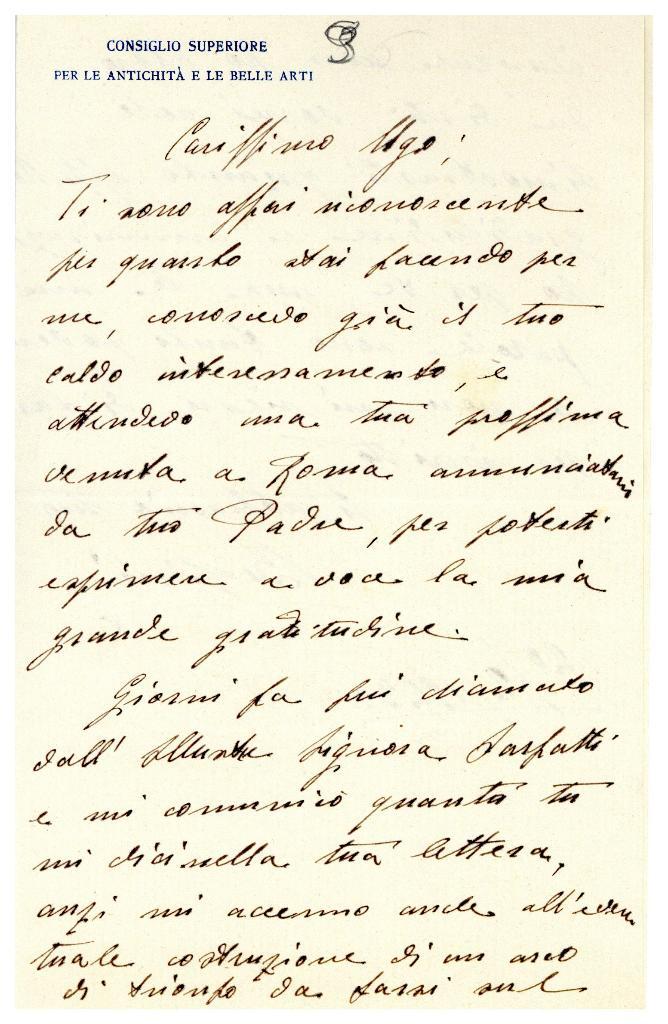 CONSIGLIO SUPERIORE
PER LE ANTICHITÀ E LE BELLE ARTI
Carissimo Ugo,
Ti sono assai riconoscente
per quanto stai facendo per
me, conoscevo già il tuo
caldo interessamento, e
attendevo una tua prossima
venuta a Roma annunciatami
da tuo Padre, per poterti
esprimere a voce la mia
grande gratitudine.
Giorni fa fui chiamato
dall' Illustre Signora Sarfatti
e mi comunicò quanto tu
mi dici nella tua lettera,
anzi mi accennò anche all'even
tuale costruzione di un arco
di trionfo da farsi sul